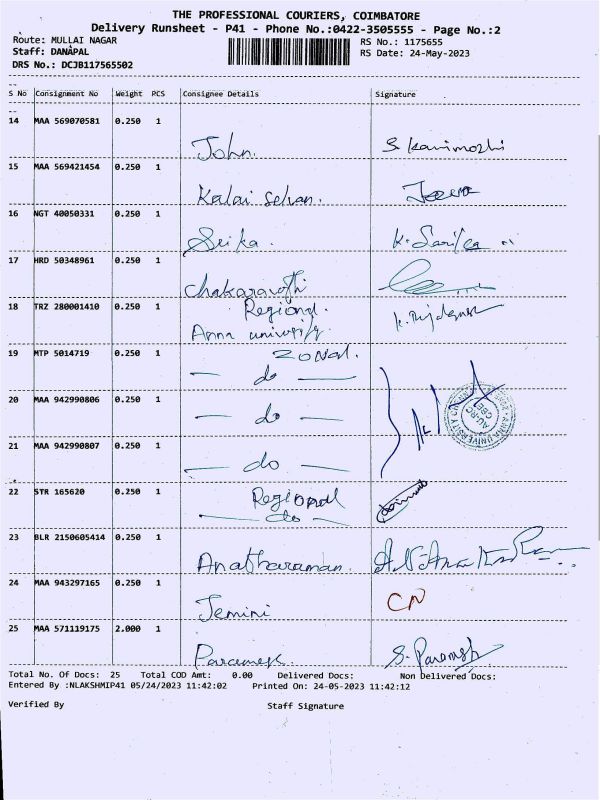 THE PROFESSIONAL COURIERS, COIMBATORE
Delivery Runsheet - P41 - Phone No.:0422-3505555 - Page No.:2
Route: MULLAI NAGAR RS No.: 1175655
Staff: DANAPAL RS Date: 24-May-2023
DRS No.: DCJB117565502
S No Consignment No Weight PCS Consignee Details Signature
14 MAA 569070581 0.250 1
John. S. Kanimozhi
15 MAA 569421454 0.250 1
Kalai Selvan.
16 NGT 40050331 0.250 1
K.
17 HRD 50348961 0.250 1
Regional.
18 TRZ 280001410 0.250 1
Anna university
19 MTP 5014719 0.250 1 ZONAL.
— do —
20 MAA 942990806 0.250 1
— do —
21 MAA 942990807 0.250 1
— do —
22 STR 165620 0.250 1 Regional
— do —
23 BLR 2150605414 0.250 1
Anatharaman.
24 MAA 943297165 0.250 1
Jemini CN
25 MAA 571119175 2.000 1
S.
Total No. Of Docs: 25 Total COD Amt: 0.00 Delivered Docs: Non Delivered Docs:
Entered By :NLAKSHMIP41 05/24/2023 11:42:02 Printed On: 24-05-2023 11:42:12
Verified By Staff Signature